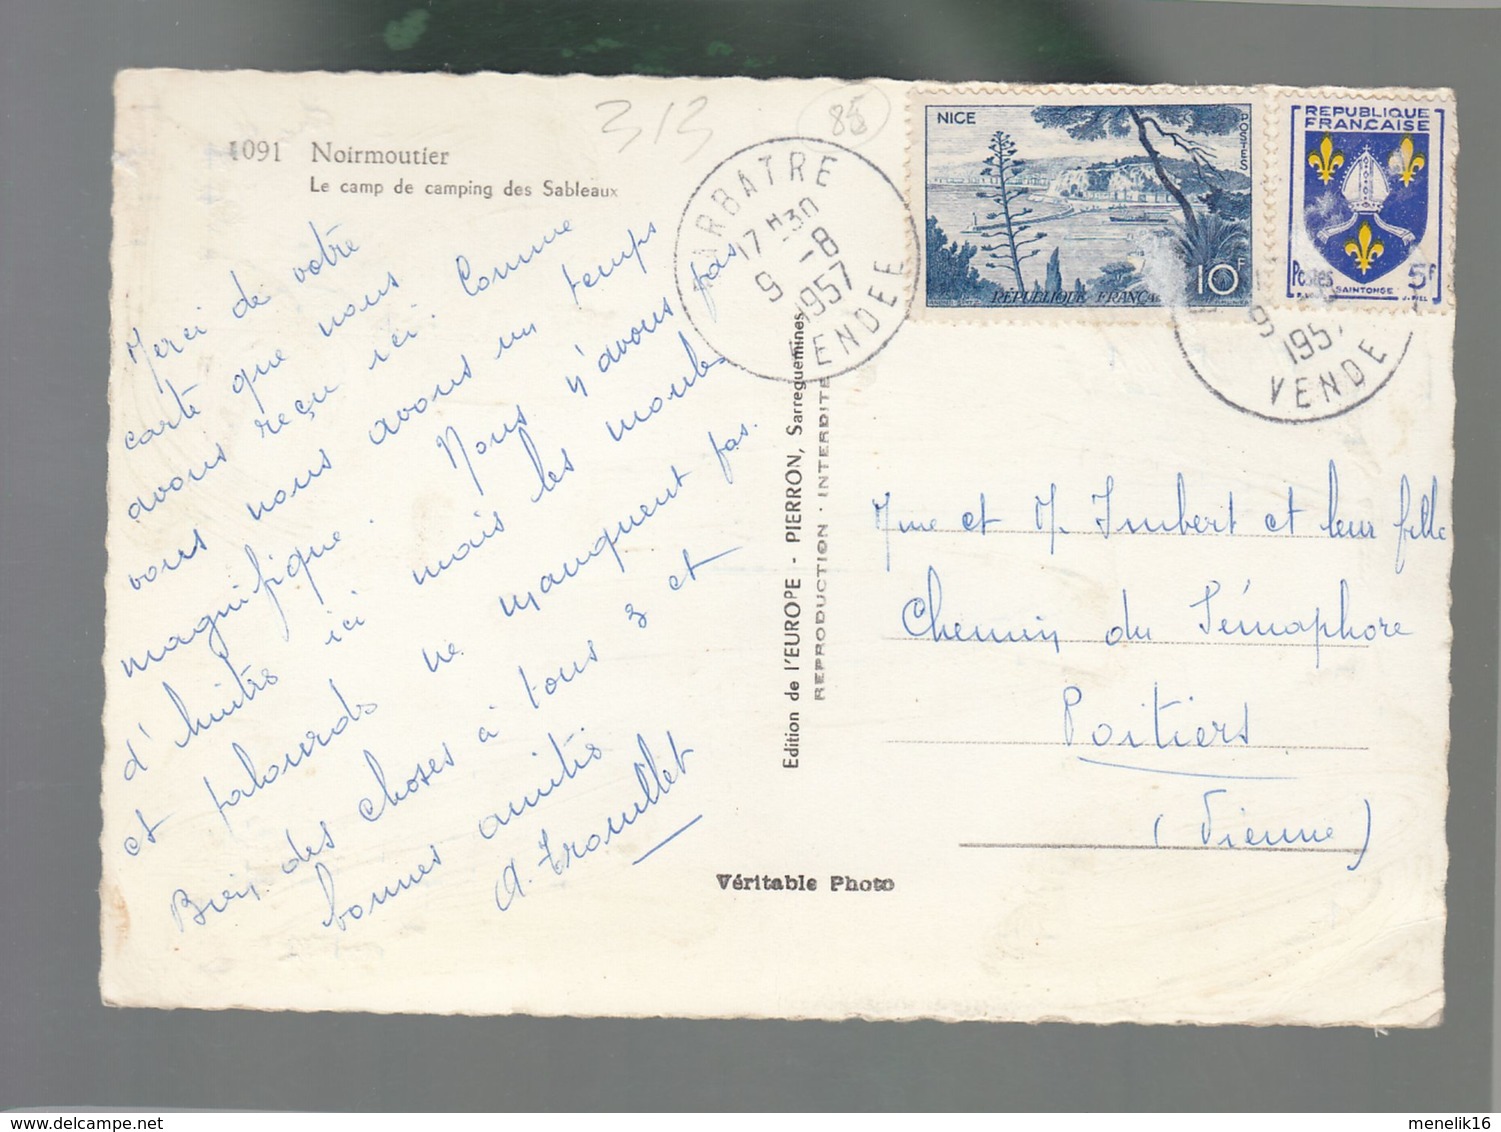 1091 Noirmoutier
Le camp de camping des Sableaux
313
85
Merci de votre
carte que nous
avons reçu ici. Comme
vous nous avons un temps
magnifique. Nous n'avons pas
d'huitres ici mais les moules
et palourds ne manquent pas.
Bien des choses à tous 3 et
bonnes amitiés
A. Troullet
BARBATRE
17 H 30
9 - 8
1957
VENDEE
Edition de l'EUROPE - PIERRON, Sarreguemines
REPRODUCTION INTERDITE
Véritable Photo
NICE
POSTES
10F
RÉPUBLIQUE FRANÇAISE
REPUBLIQUE
FRANÇAISE
Postes
5F
SAINTONGE
9
1957
VENDE
Mme et M. Imbert et leur fille
Chemin du Sémaphore
Poitiers
(Vienne)
menelik16